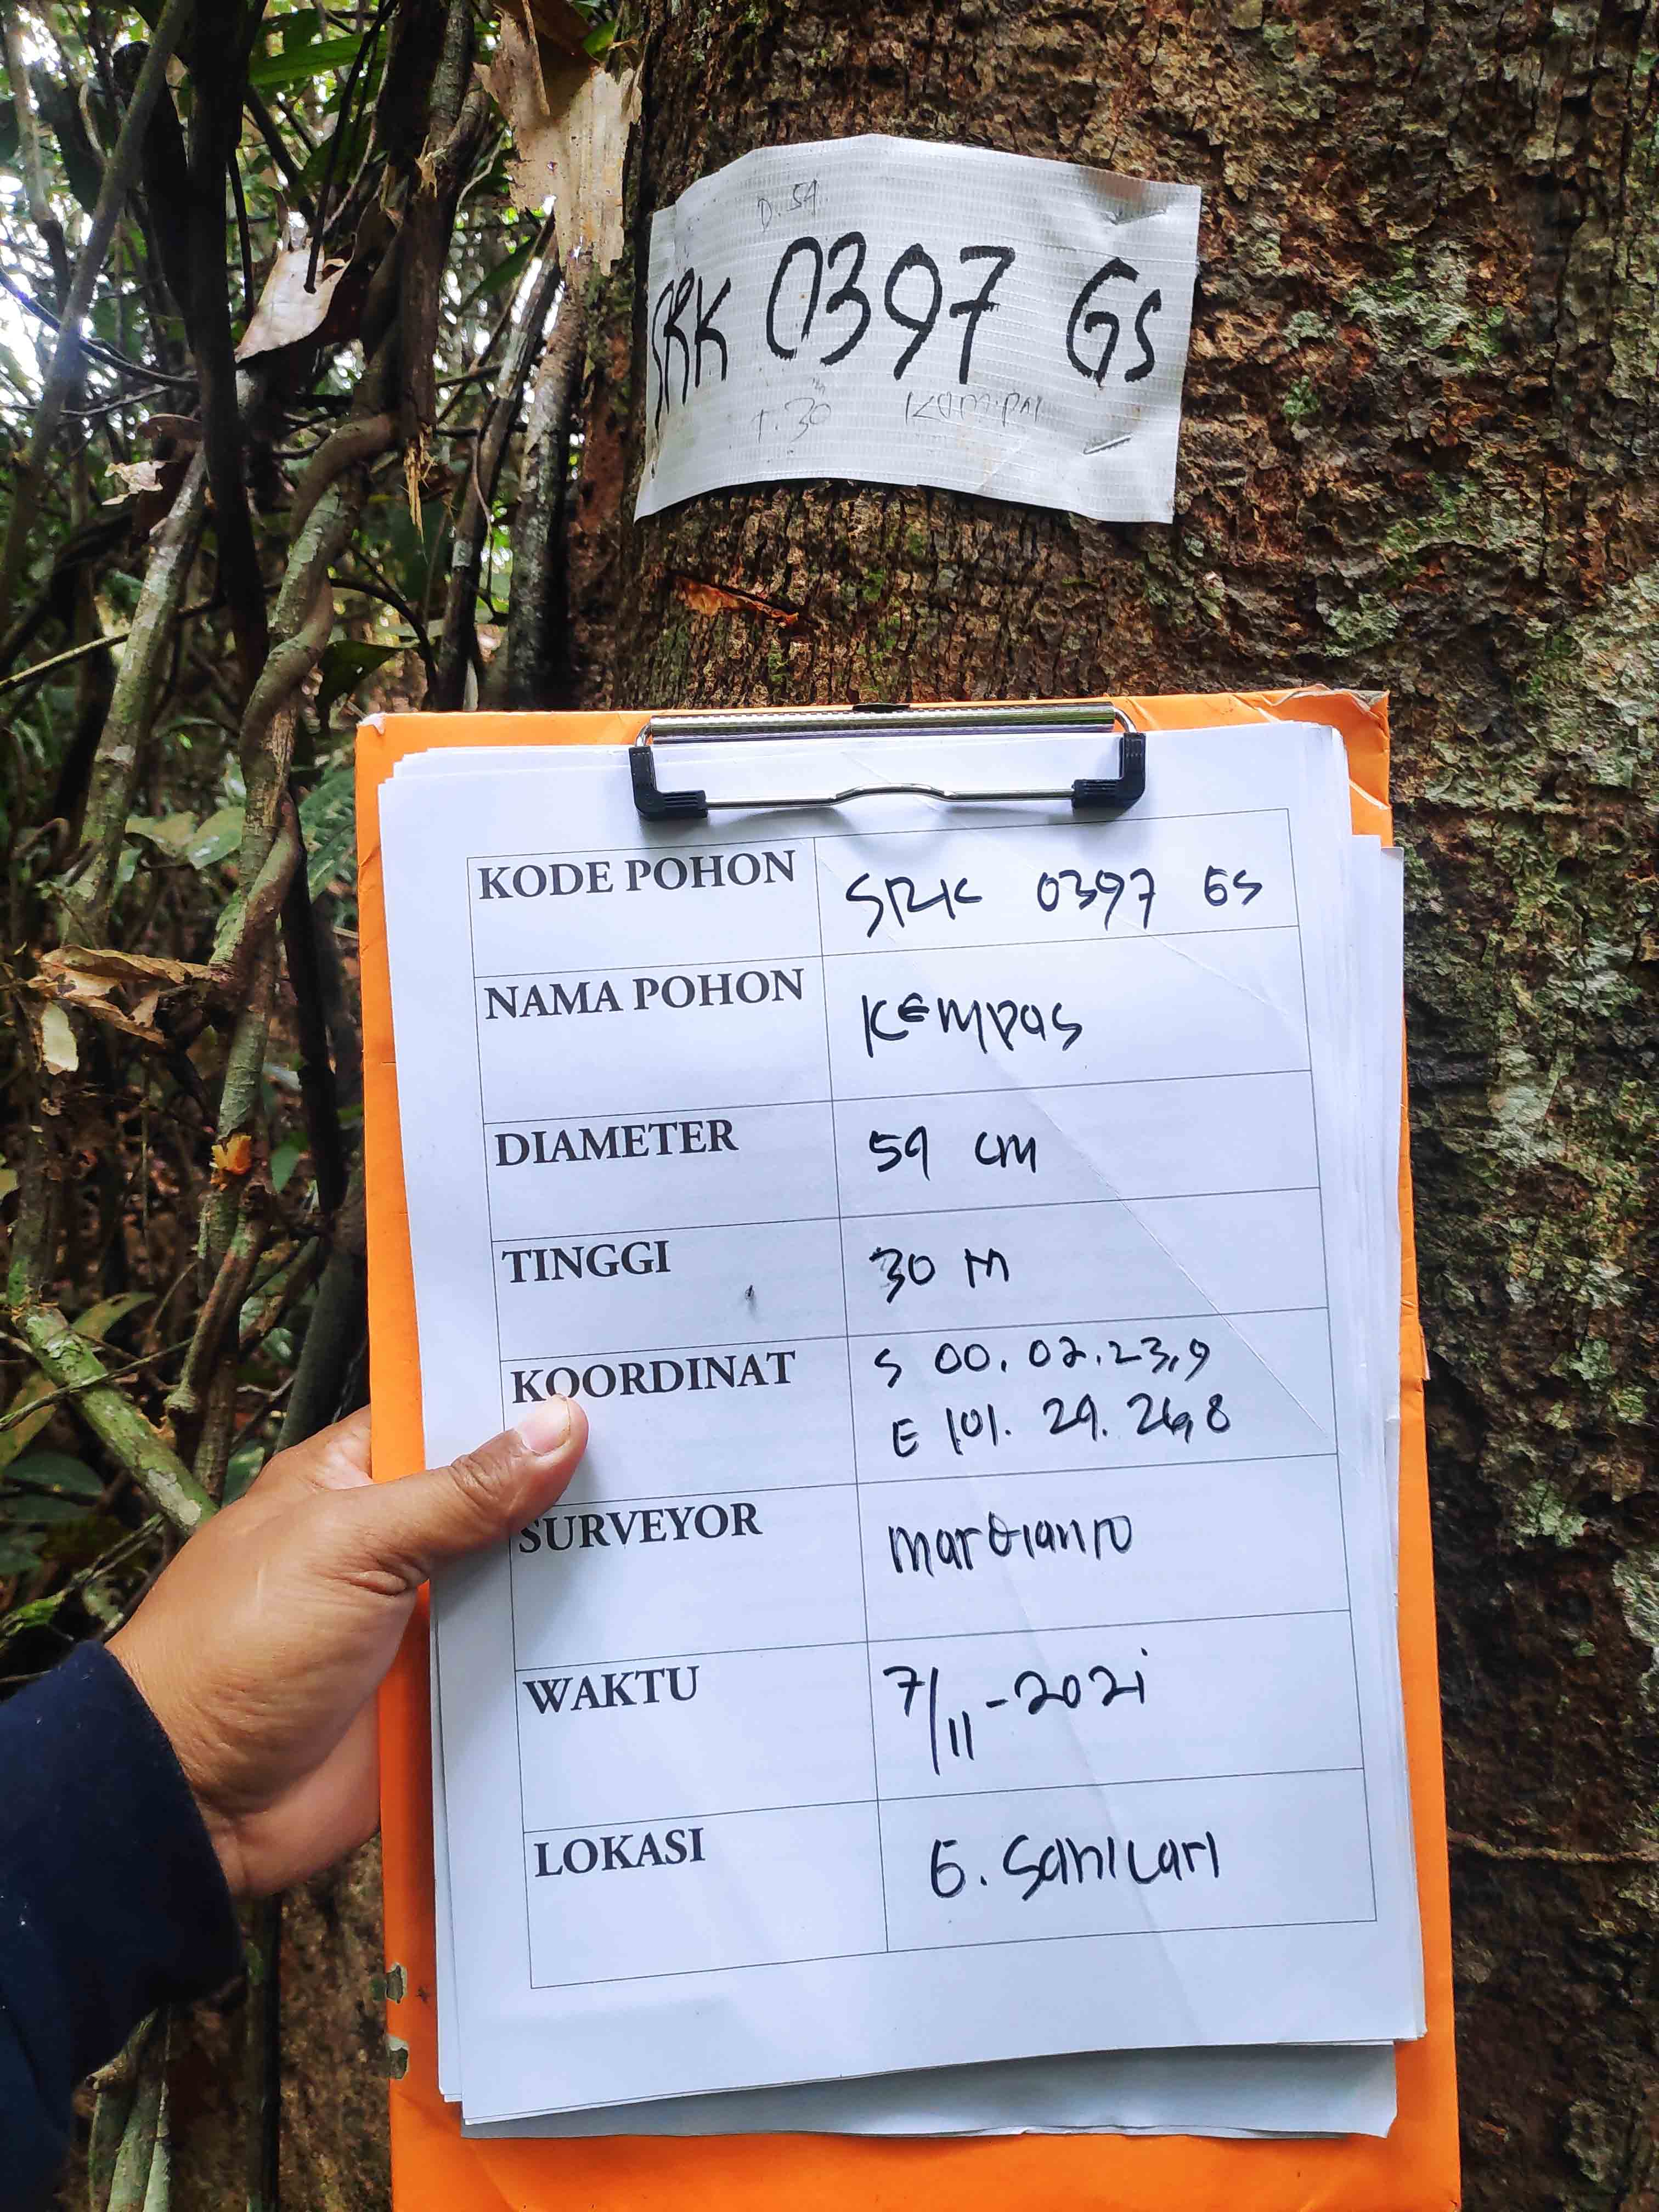 D. 59
SRK 0397 GS
T. 30
KODE POHON SRK 0397 GS
NAMA POHON KEMPAS
DIAMETER 59 CM
TINGGI 30 M
KOORDINAT S 00. 02. 23,9
E 101. 29. 26,8
SURVEYOR
WAKTU 7/11-2021
LOKASI G. Sahilan